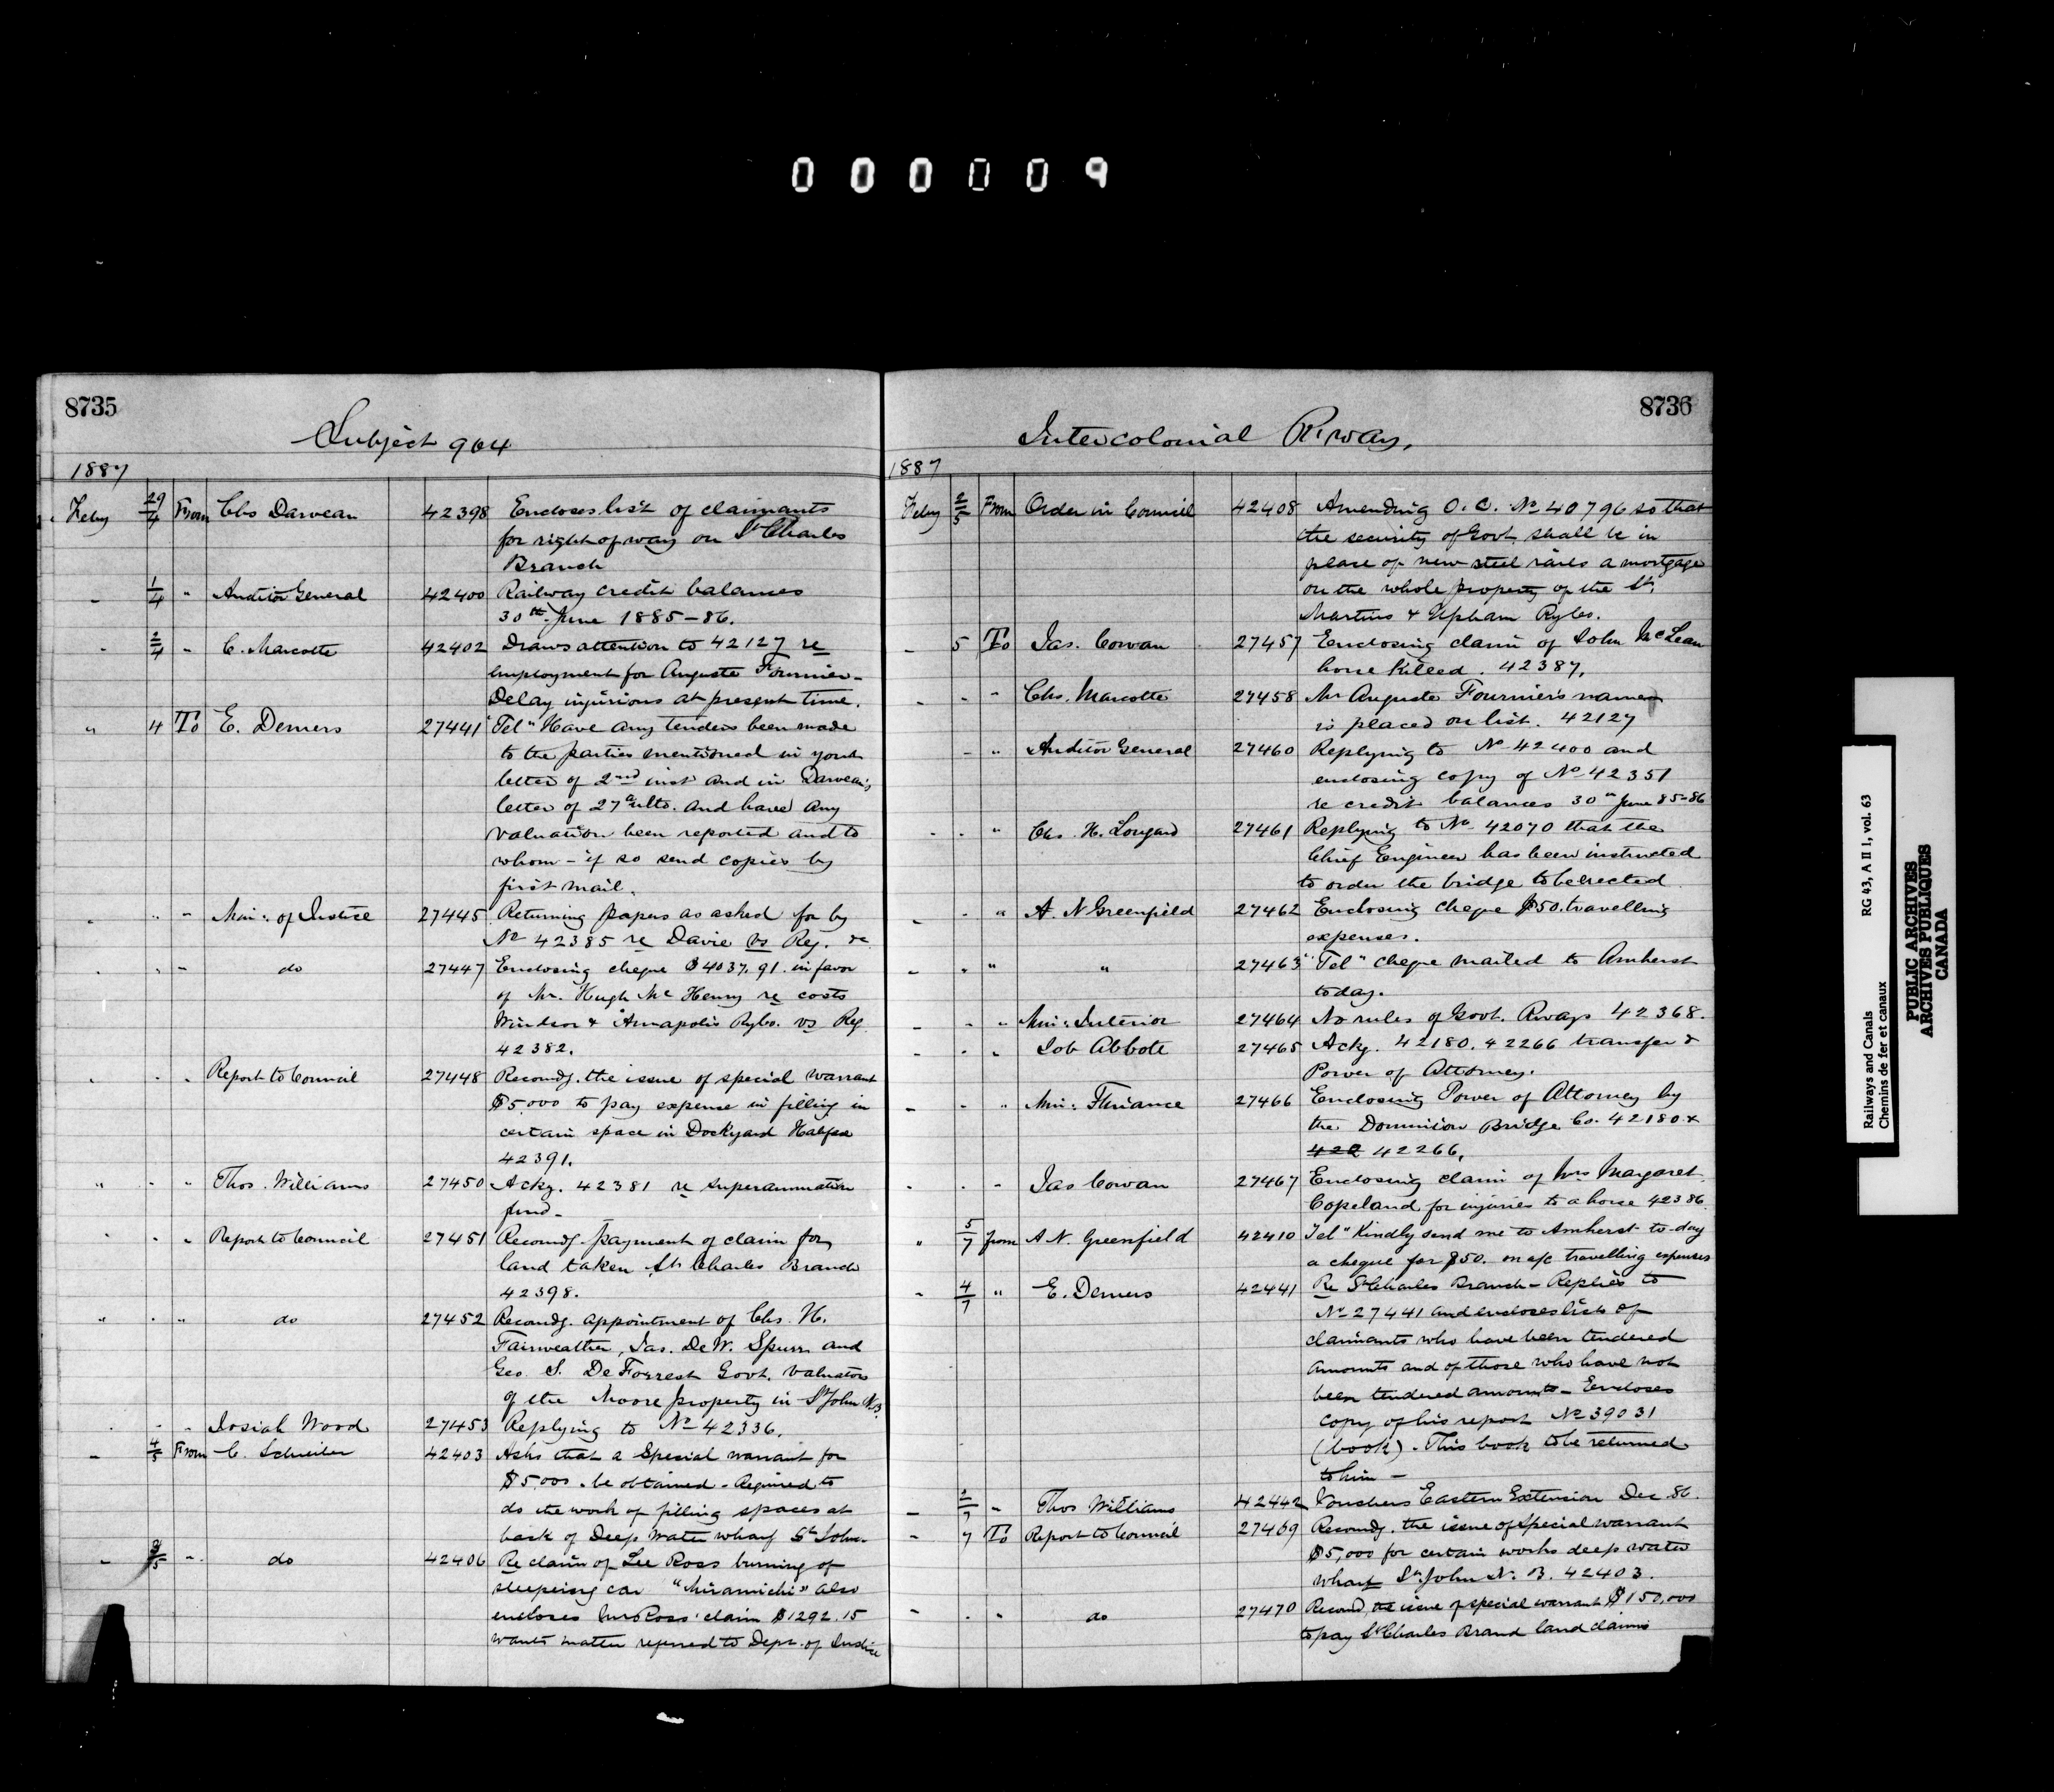 000009
8735
Subject 904
1887
Feby 29/4 From Chs Darveau 42398 Encloses list of claimants
for right of way on St Charles
Branch
- 1/4 " Auditor General 42400 Railway credit balances
30th June 1885-86.
- 2/4 - C. Marcotte 42402 Draws attention to 42127 re
employment for Auguste Fournier -
Delay injurious at present time.
" 4 To E. Demers 27441 "Tel" Have any tenders been made
to the parties mentioned in your
letter of 2nd inst and in Darveau's
letter of 27th ulto. and have any
valuation been reported and to
whom - if so send copies by
first mail.
- " - Min: of Justice 27445 Returning papers as asked for by
No 42385 re Davie vs Reg. &c
. . - do 27447 Enclosing cheque $4037.91. in favor
of Mr. Hugh McHenry re costs
Windsor & Annapolis Rybo. vs Reg.
42382.
. . " Report to Council 27448 Recomdg. the issue of special warrant
$5,000 to pay expense in filling in
certain space in Dockyard Halifax
42391.
" . " Thos. Williams 27450 Ackg. 42381 re superannuation
fund -
. . " Report to Council 27451 Recomdg. payment of claim for
land taken St. Charles Branch
42398.
" . " do 27452 Recomdg. appointment of Chs. H.
Fairweather, Jas. De W. Spurr and
Geo. S. De Forrest Govt. Valuators
of the Moore property in St John N.B.
. . " Josiah Wood 27453 Replying to No 42336.
- 4/5 From C. Schreiber 42403 Asks that a Special warrant for
$5,000 . be obtained - Required to
do the work of filling spaces at
back of Deep Water wharf St John.
- 3/5 " do 42406 Re claim of Lee Ross burning of
sleeping car "Miramichi" also
encloses Mrs Ross' claim $1292.15
wants matter referred to Dept. of Justice
8736
Intercolonial R.way.
1887
Feby 2/5 From Order in Council 42408 Amending O.C. No 40796 so that
the security of Govt shall be in
place of new steel rails a mortgage
on the whole property of the St.
Martins & Upham Rybo.
- 5 To Jas. Cowan 27457 Enclosing claim of John McLean
horse killed. 42387.
- - " Chs. Marcotte 27458 Mr Auguste Fournier's name
is placed on list. 42127
- " Auditor General 27460 Replying to No 42400 and
enclosing copy of No 42351
re credit balances 30th June 85-86
- . " Chs. H. Longard 27461 Replying to No 42070 that the
Chief Engineer has been instructed
to order the bridge to be erected
- . " A. N Greenfield 27462 Enclosing cheque $50. travelling
expenses.
- . " " 27463 "Tel" cheque mailed to Amherst
today.
- . " Min: Interior 27464 No rules of Govt. Rways 42368.
- . " Job Abbott 27465 Ackg. 42180. 42266 transfer &
Power of Attorney.
- . " Min: Finance 27466 Enclosing Power of Attorney by
the Dominion Bridge Co. 42180 &
422 42266.
- . - Jas Cowan 27467 Enclosing claim of Mrs Margaret
Copeland for injuries to a horse 42386
" 5/7 from A N. Greenfield 42410 Tel" Kindly send me to Amherst to-day
a cheque for $50. on a/c travelling expenses
- 4/7 " E. Demers 42441 Re St Charles Branch - Replies to
No 27441 and encloses list of
claimants who have been tendered
amounts and of those who have not
been tendered amounts - Encloses
copy of his report No 39031
(book). This book to be returned
to him -
- 2/7 " Thos Williams 42442 Vouchers Eastern Extension Dec 86.
- 7 To Report to Council 27469 Recomdg. the issue of special warrant
$5,000 for certain works deep water
wharf St. John N.B. 42403.
- . " do 27470 Recomd, the issue of special warrant $150,000
to pay St Charles Brand land claims
Railways and Canals RG 43, A II 1, vol. 63
Chemins de fer et canaux
PUBLIC ARCHIVES
ARCHIVES PUBLIQUES
CANADA